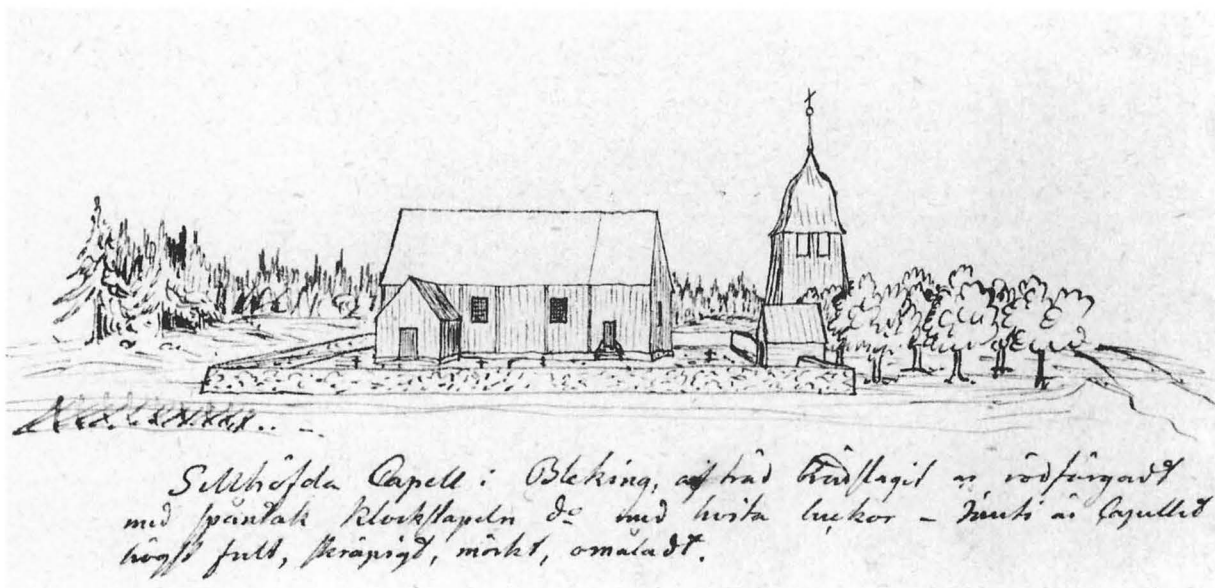 Sillhöfda Capell i Bleking, af träd brädslagit är rödfärgadt
med spåntak Klockstapeln do med hvita luckor – Inuti är Capellet
högst fult, skräpigt, mörkt, omåladt.